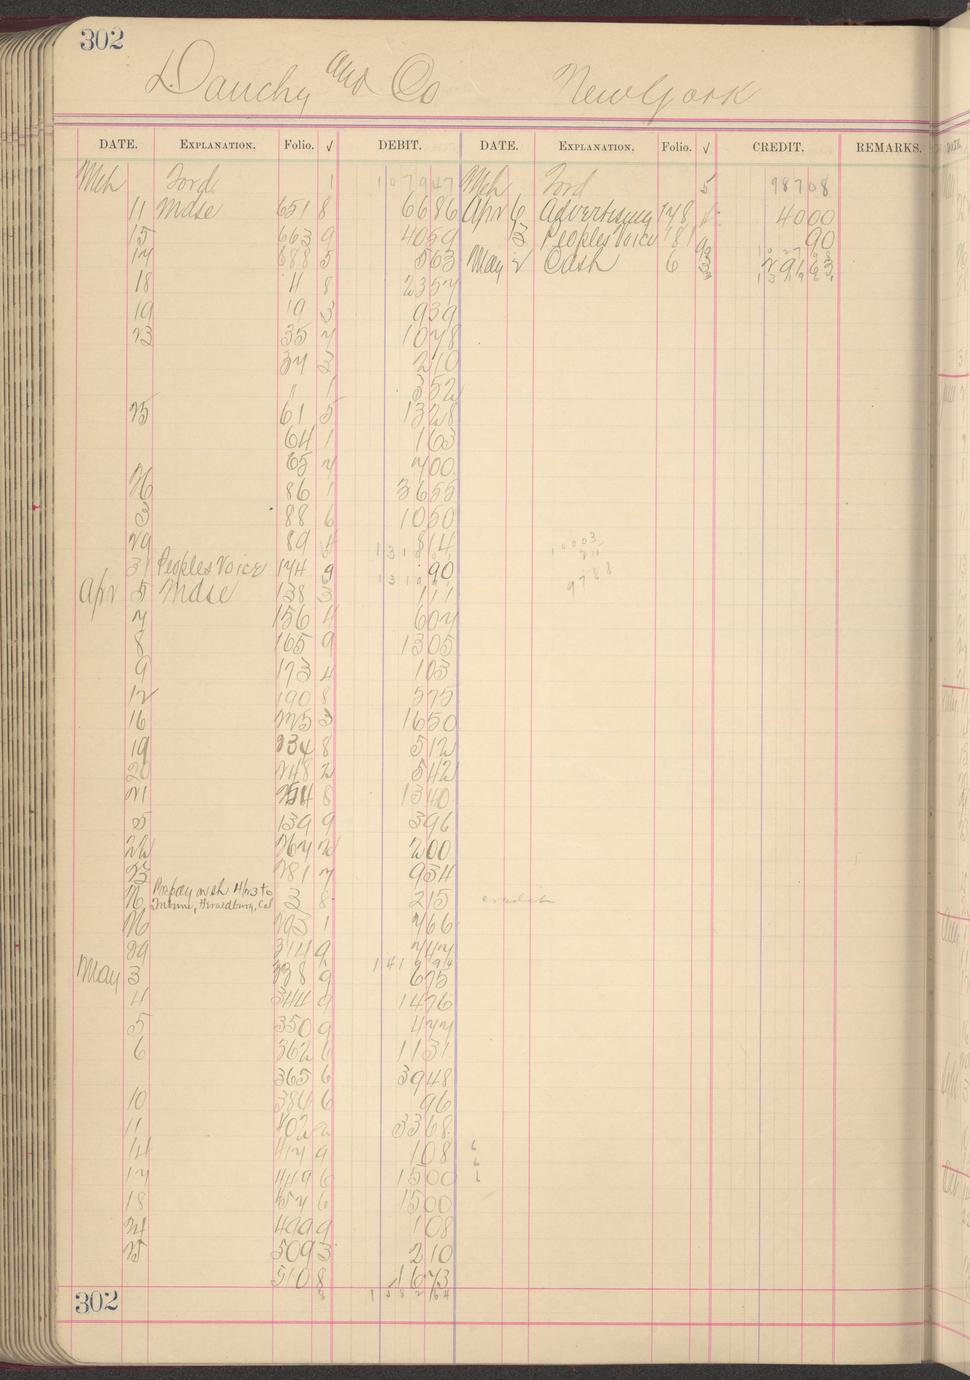 302
Dauchy and Co New York
DATE. EXPLANATION. Folio. √ DEBIT. DATE. EXPLANATION. Folio. √ CREDIT. REMARKS.
Mch Ford 1 107947 Mch Ford 5 98708
11 Mdse 651 8 6686 Apr 6 Advertising 148 4000
15 663 9 4059 Peoples Voice 181 90
17 688 5 563 May 2 Cash 6
18 4 8 2357
19 19 3 939
23 35 7 1078
37 3 210
" 1 352
25 61 5 1328
64 1 163
65 7 700
26 86 1 3655
3 88 6 1050
29 89 4 814
31 Peoples Voice 174 9 90
Apr 5 Mdse 138 3 111
7 156 4 607
8 165 9 1305
9 173 4 103
12 190 8 575
16 225 3 1650
19 234 8 512
20 248 2 542
21 254 8 1340
139 9 396
22 267 2 200
23 281 7 934
26 Prepay on sh 4/23 to 3 8 215 credit
Healdsburg, Cal
26 1 766
29 314 9 747
May 3 338 9 675
4 344 9 1476
5 350 9 477
6 362 6 1131
365 6 3948
10 384 6 96
11 402 2 3368
14 417 9 108
17 449 6 1500
18 457 6 1500
24 499 9 108
25 509 3 210
510 8 1673
302